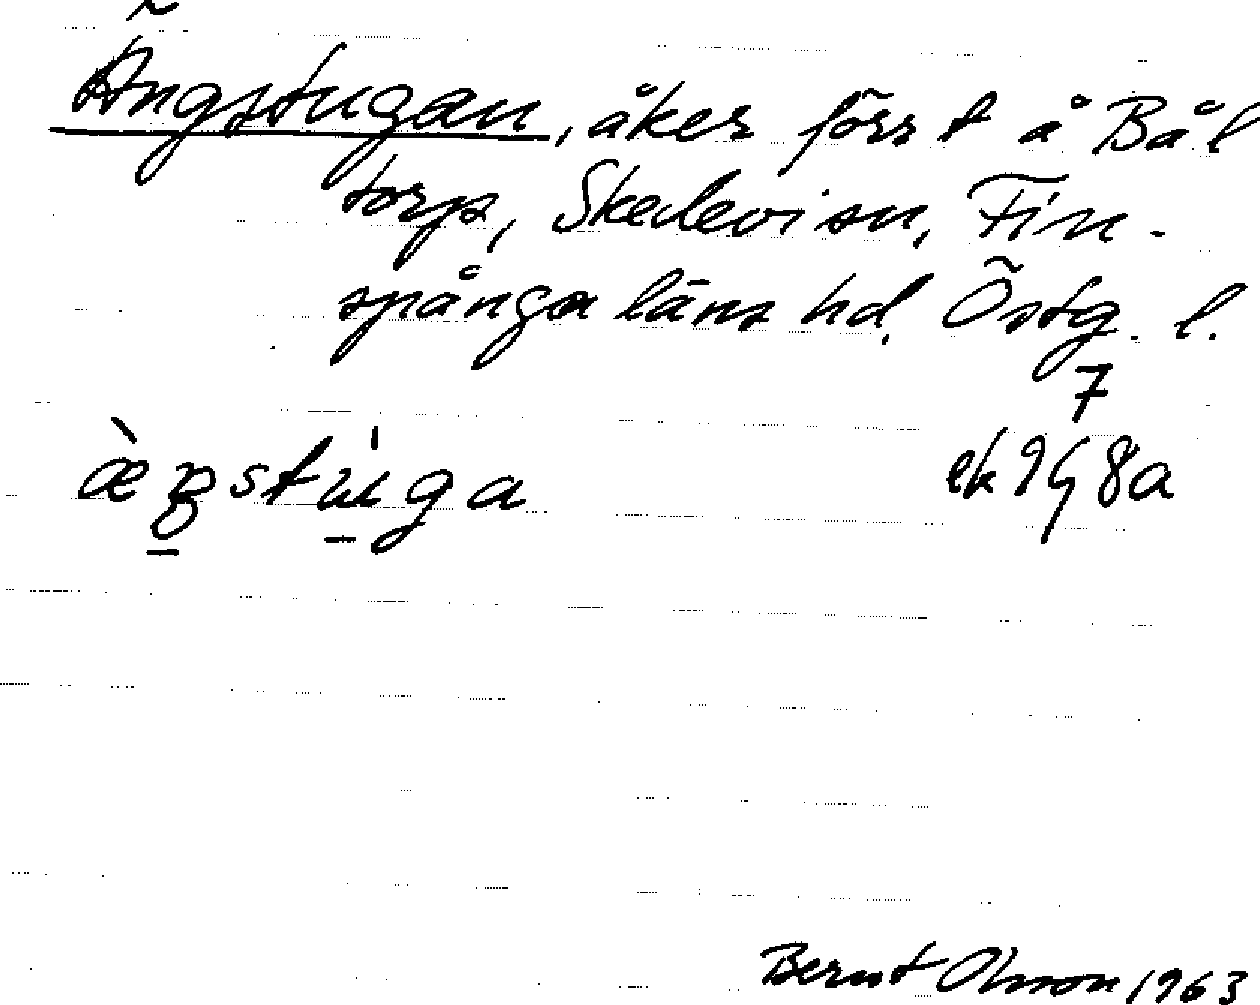 Ängstugan, åker förr t å Bål
torp, Skedevi sn, Fin-
spånga läns hd, Östg. l.
7
ek 948a
Bernt Olsson 1963